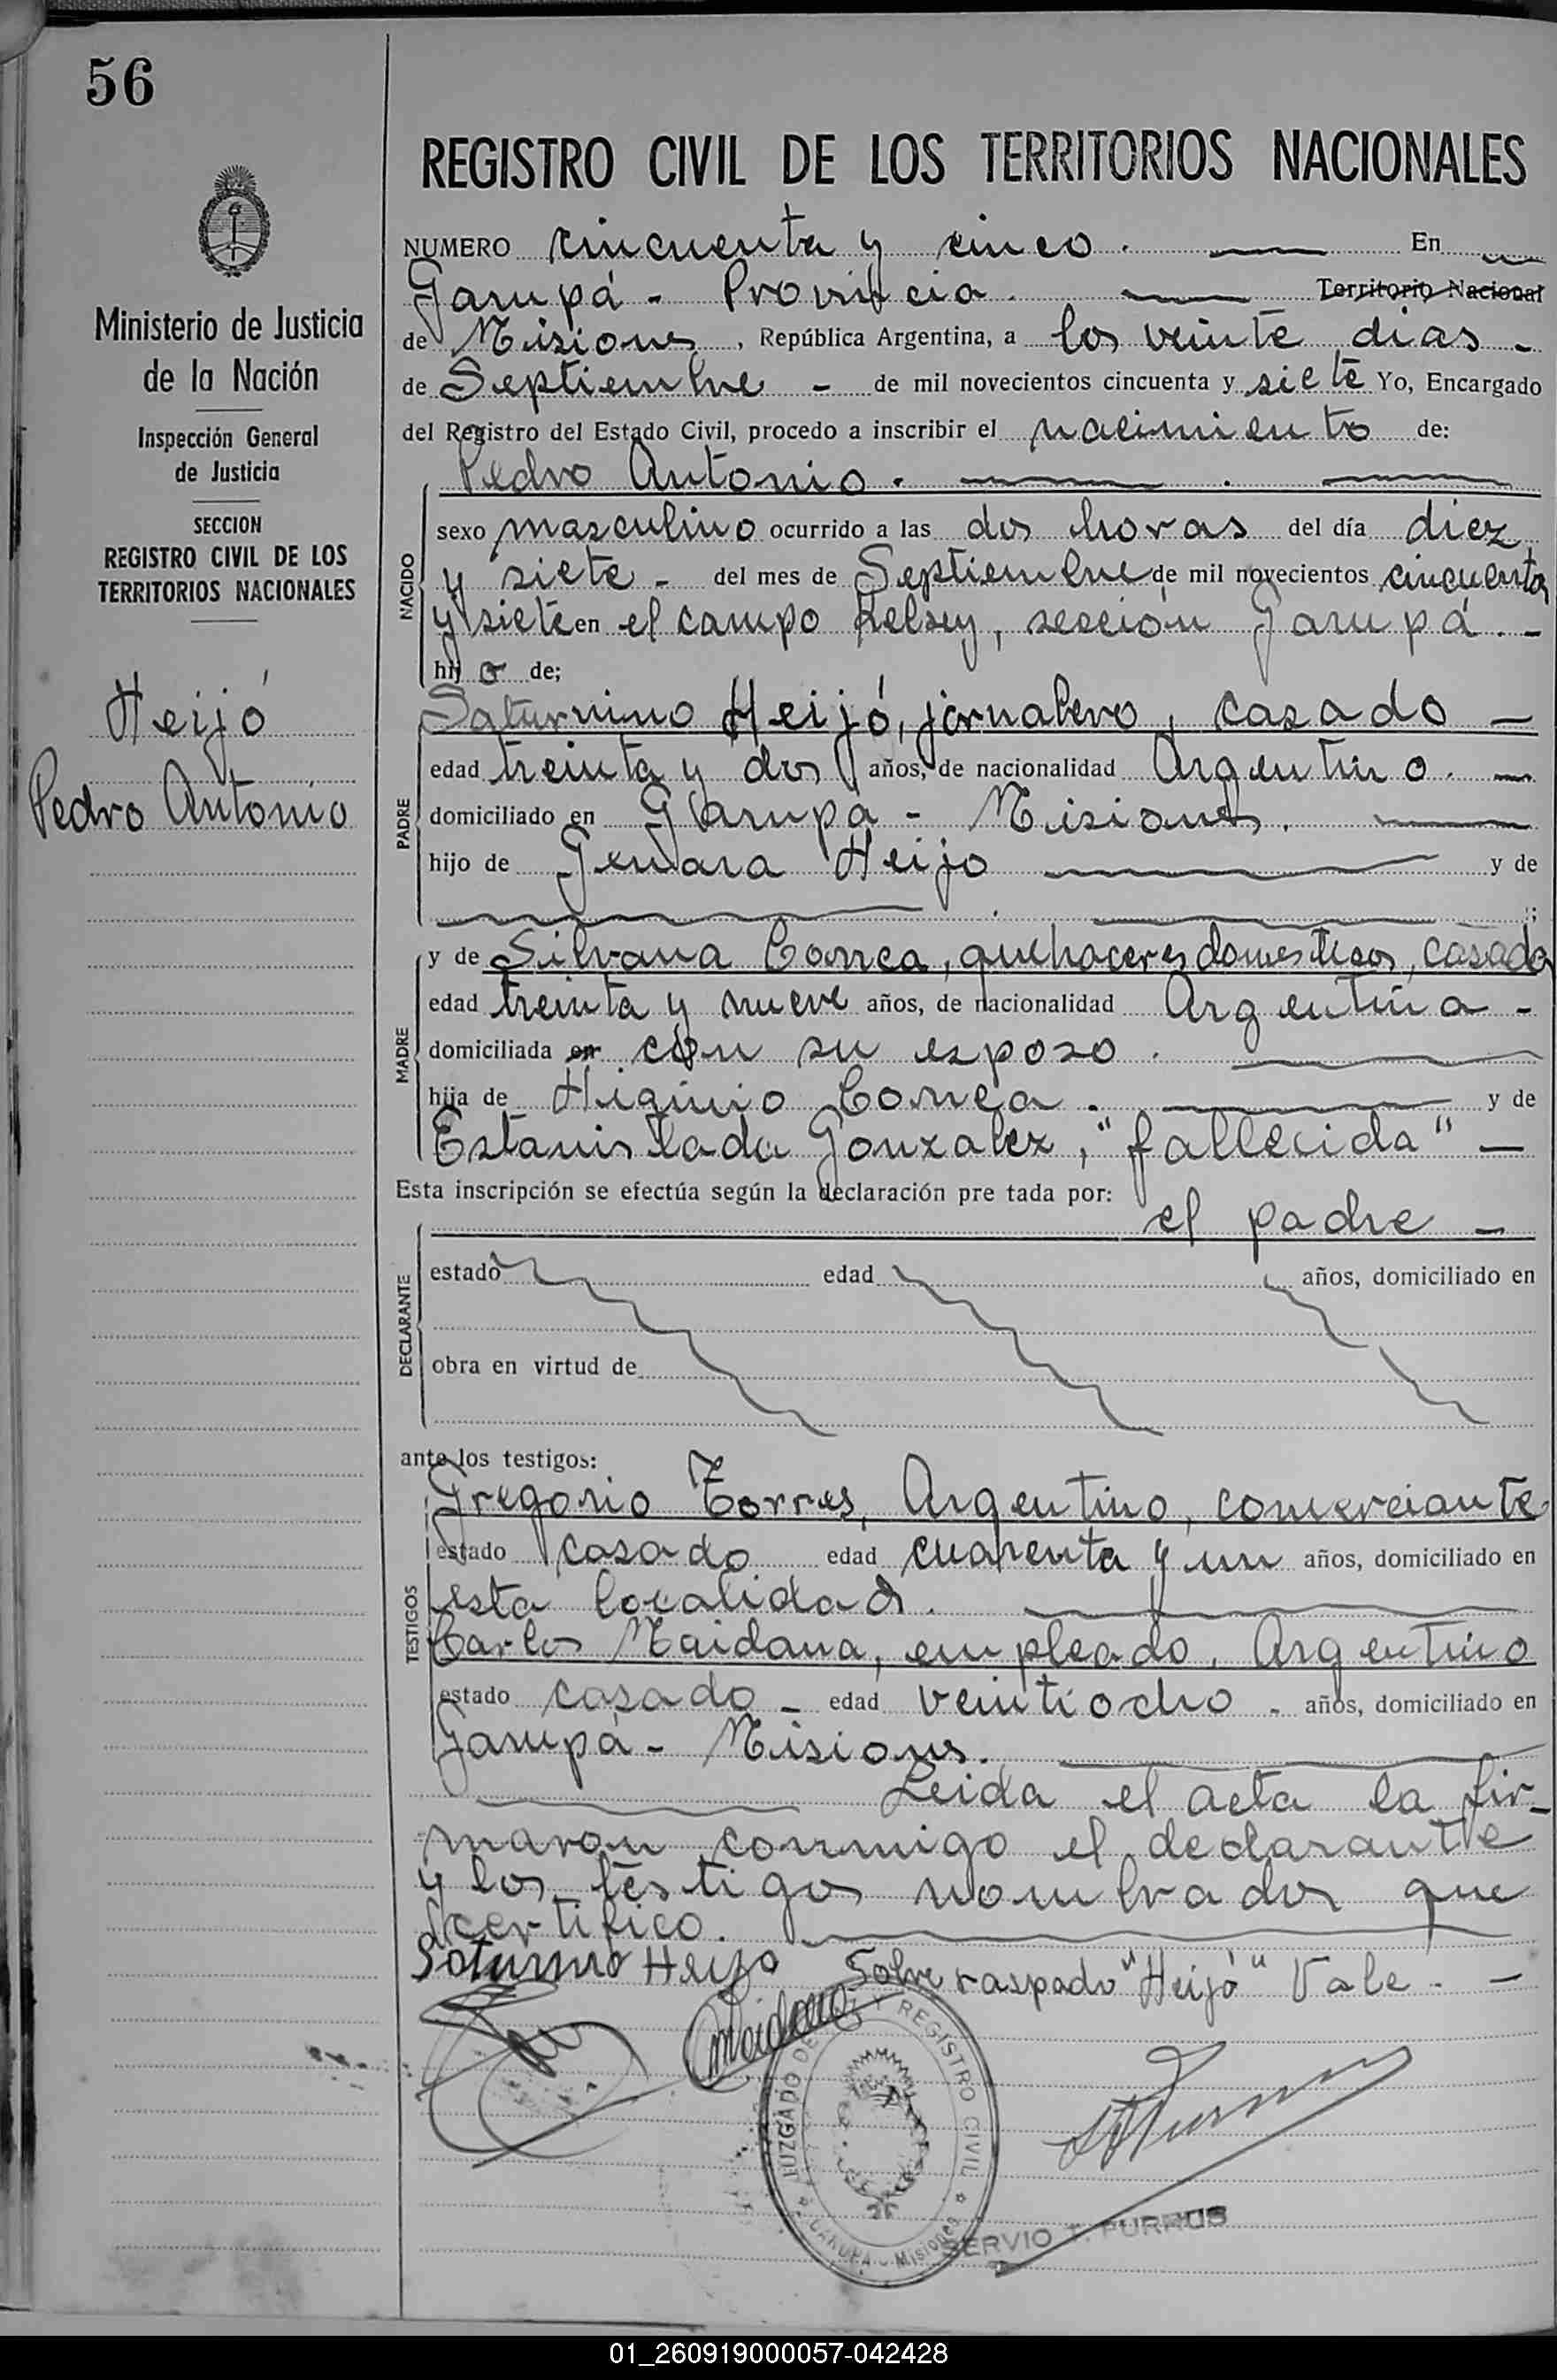 56
Ministerio de Justicia
de la Nación
Inspección General
de Justicia
SECCION
REGISTRO CIVIL DE LOS
TERRITORIOS NACIONALES
Heijó
Pedro Antonio
REGISTRO CIVIL DE LOS TERRITORIOS NACIONALES
NUMERO cincuenta y cinco. En
Garupá - Provincia. Territorio Nacional
de Misiones, República Argentina, a los veinte dias -
de Septiembre - de mil novecientos cincuenta y siete Yo, Encargado
del Registro del Estado Civil, procedo a inscribir el nacimiento de:
Pedro Antonio.
NACIDO
sexo masculino ocurrido a las dos horas del día diez
y siete - del mes de Septiembre de mil novecientos cincuenta
y siete en el campo Kelsey, sección Garupá. -
hijo de;
PADRE
Saturnino Heijó, jornalero, casado -
edad treinta y dos años, de nacionalidad Argentino. -
domiciliado en Garupá - Misiones.
hijo de Genara Heijo y de
;
MADRE
y de Silvana Correa, quehaceres domesticos, casada
edad treinta y nueve años, de nacionalidad Argentina -
domiciliada en con su esposo.
hija de Higinio Correa. y de
Estanislada Gonzalez, "fallecida" -
Esta inscripción se efectúa según la declaración pre tada por:
el padre -
DECLARANTE
estado edad años, domiciliado en
obra en virtud de
ante los testigos:
TESTIGOS
Gregorio Torres, Argentino, comerciante
estado casado edad cuarenta y un años, domiciliado en
esta localidad.
Carlos Maidana, empleado, Argentino
estado casado - edad veintiocho - años, domiciliado en
Garupá - Misiones.
Leida el acta la fir-
maron conmigo el declarante
y los testigos nombrados que
certifico.
Saturnino Heijo Sobre raspado "Heijó" Vale. -
Maidana
JUZGADO DE PAZ Y REGISTRO CIVIL
GARUPA - Misiones
SERVIO T. PURRUS
01_260919000057-042428